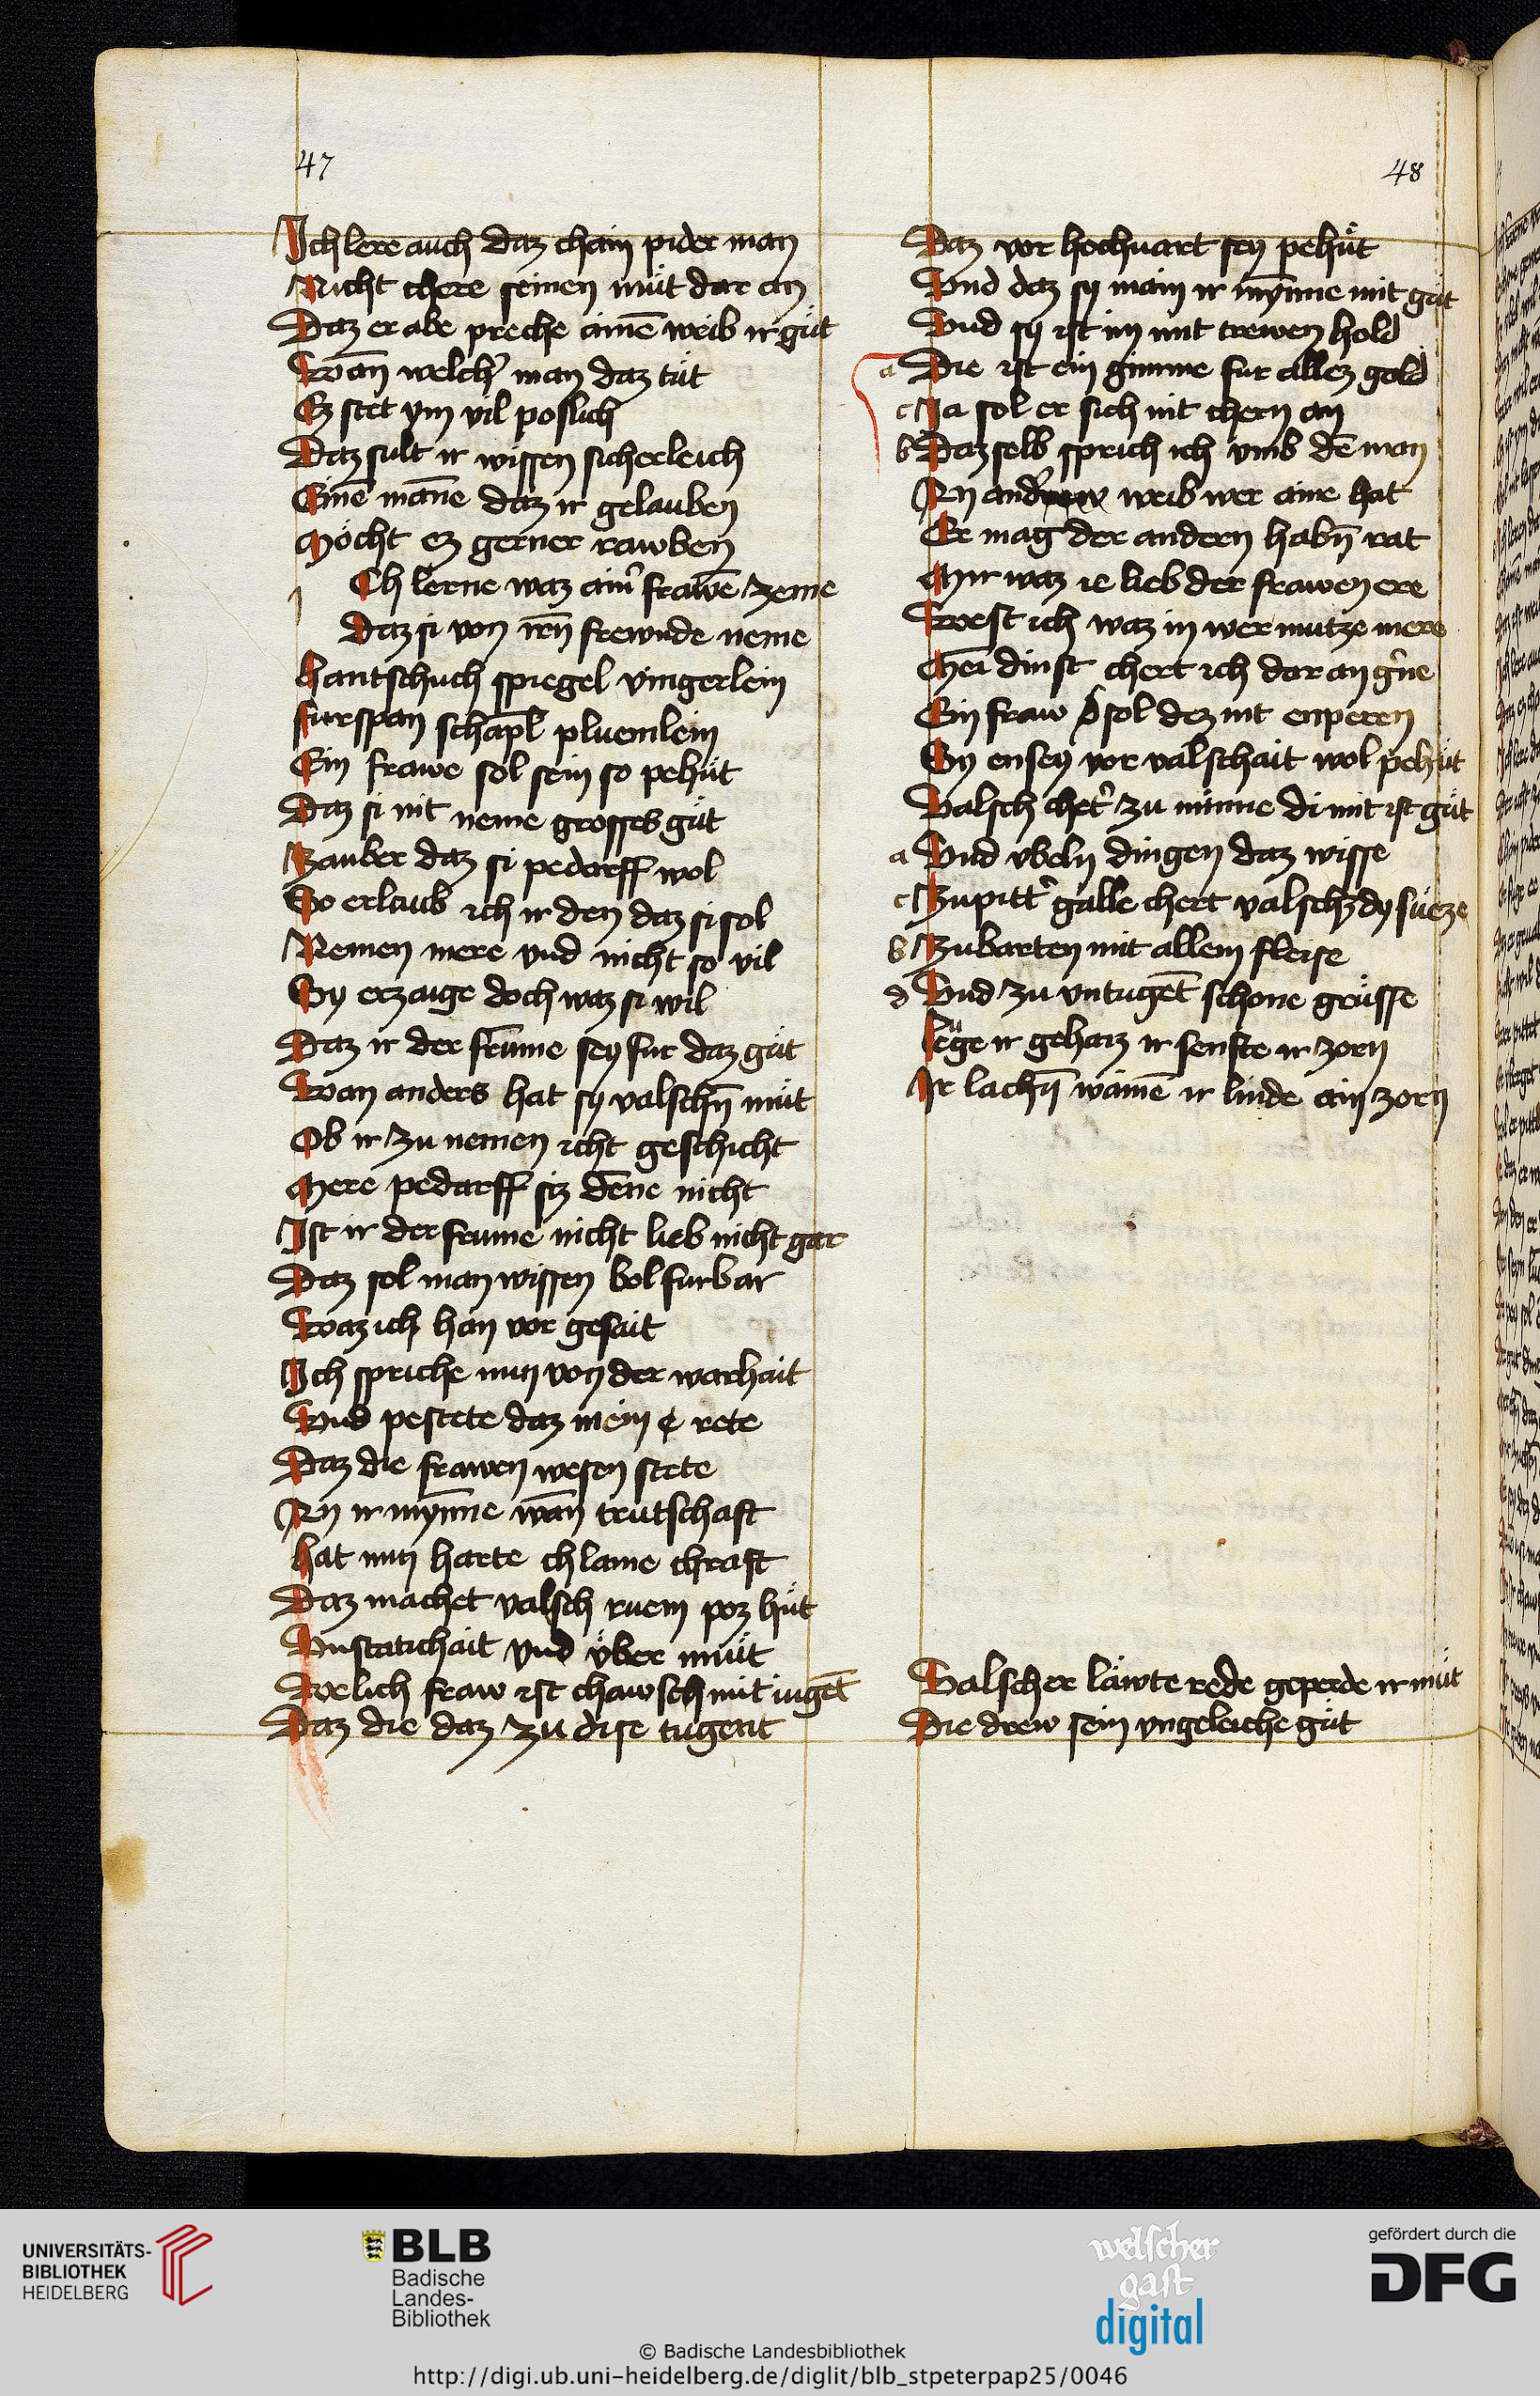 47
Ich lere auch daz chain pider man
Nicht chere seinen müt dar an
Daz er abe preche aimē weib ir güt
Wan̄ welch' man daz tüt
Ez stet ym vil poslich
Daz sult ir wissen sicherleich
Einē mañe daz ir gelauben
Möcht ez gerner rawben
Ch lerne waz aim' frawē zeme
Daz si von irn̄ frewnde neme
hantschuch spiegel vingerlein
furspan schapl̄ pluemlein
Ein frawe sol sein so pehüt
Daz si nit neme grosses güt
Zauber daz si pedarff wol
So erlaub ich ir den daz si sol
Nemen mere vnd nicht so vil
Sy erzaige doch waz si wil
Daz ir der frūme sey fur daz güt
Wan anders hat sy valschn̄ müt
Ob ir zu nemen icht geschicht
Mere pedarff siz deñe nicht
Ist ir der frume nicht lieb nicht gar
Daz sol man wissen bol furbar
Waz ich han vor gesait
Ich spriche nun von der warhait
Vnd pestete daz mein rete
Daz die frawen wesen stete
An ir myñe wan̄ trutschaft
hat nun harte chlaine chraft
Daz machet valsch ruem poz hüt
Vnstatichait vnd über müt
Welich fraw ist chawsch mit iugēt
Daz die daz zu dise tugent
48
Daz vor hochuart sey pehüt
Vnd daz sy main ir myñne mit güt
Vnd sy ist im mit trewen hold
a Die ist ein gimme fur allez gold
c Ja sol er sich nit chern an
b Daz selb sprich ich vmb dē man
An and' weib wer aine hat
Er mag der andern habn̄ rat
Mir waz ie lieb der frawen ere
West ich waz in wer nutze mere
Mei dinst chert ich dar an g'ne
Ein fraw sol dez nit enperen
Sy ensey vor valschait wol pehüt
Valsch chet' zu minne di nit ist güt
a Vnd vbeln dingen daz wisse
c Zu pitt' galle chert valsch dy süeze
b Zubarten mit allem fleise
d Vnd zu vntugēt schone grüsse
lüge ir gehaiz ir senfte ir zorn
Ir lachn̄ wainē ir linde ain zorn
Valscher läwte rede geperde ir müt
Die drew sein vngeleiche güt
UNIVERSITÄTS-
BIBLIOTHEK
HEIDELBERG
BLB
Badische
Landes-
Bibliothek
welscher
gast
digital
gefördert durch die
DFG
© Badische Landesbibliothek
http://digi.ub.uni-heidelberg.de/diglit/blb_stpeterpap25/0046